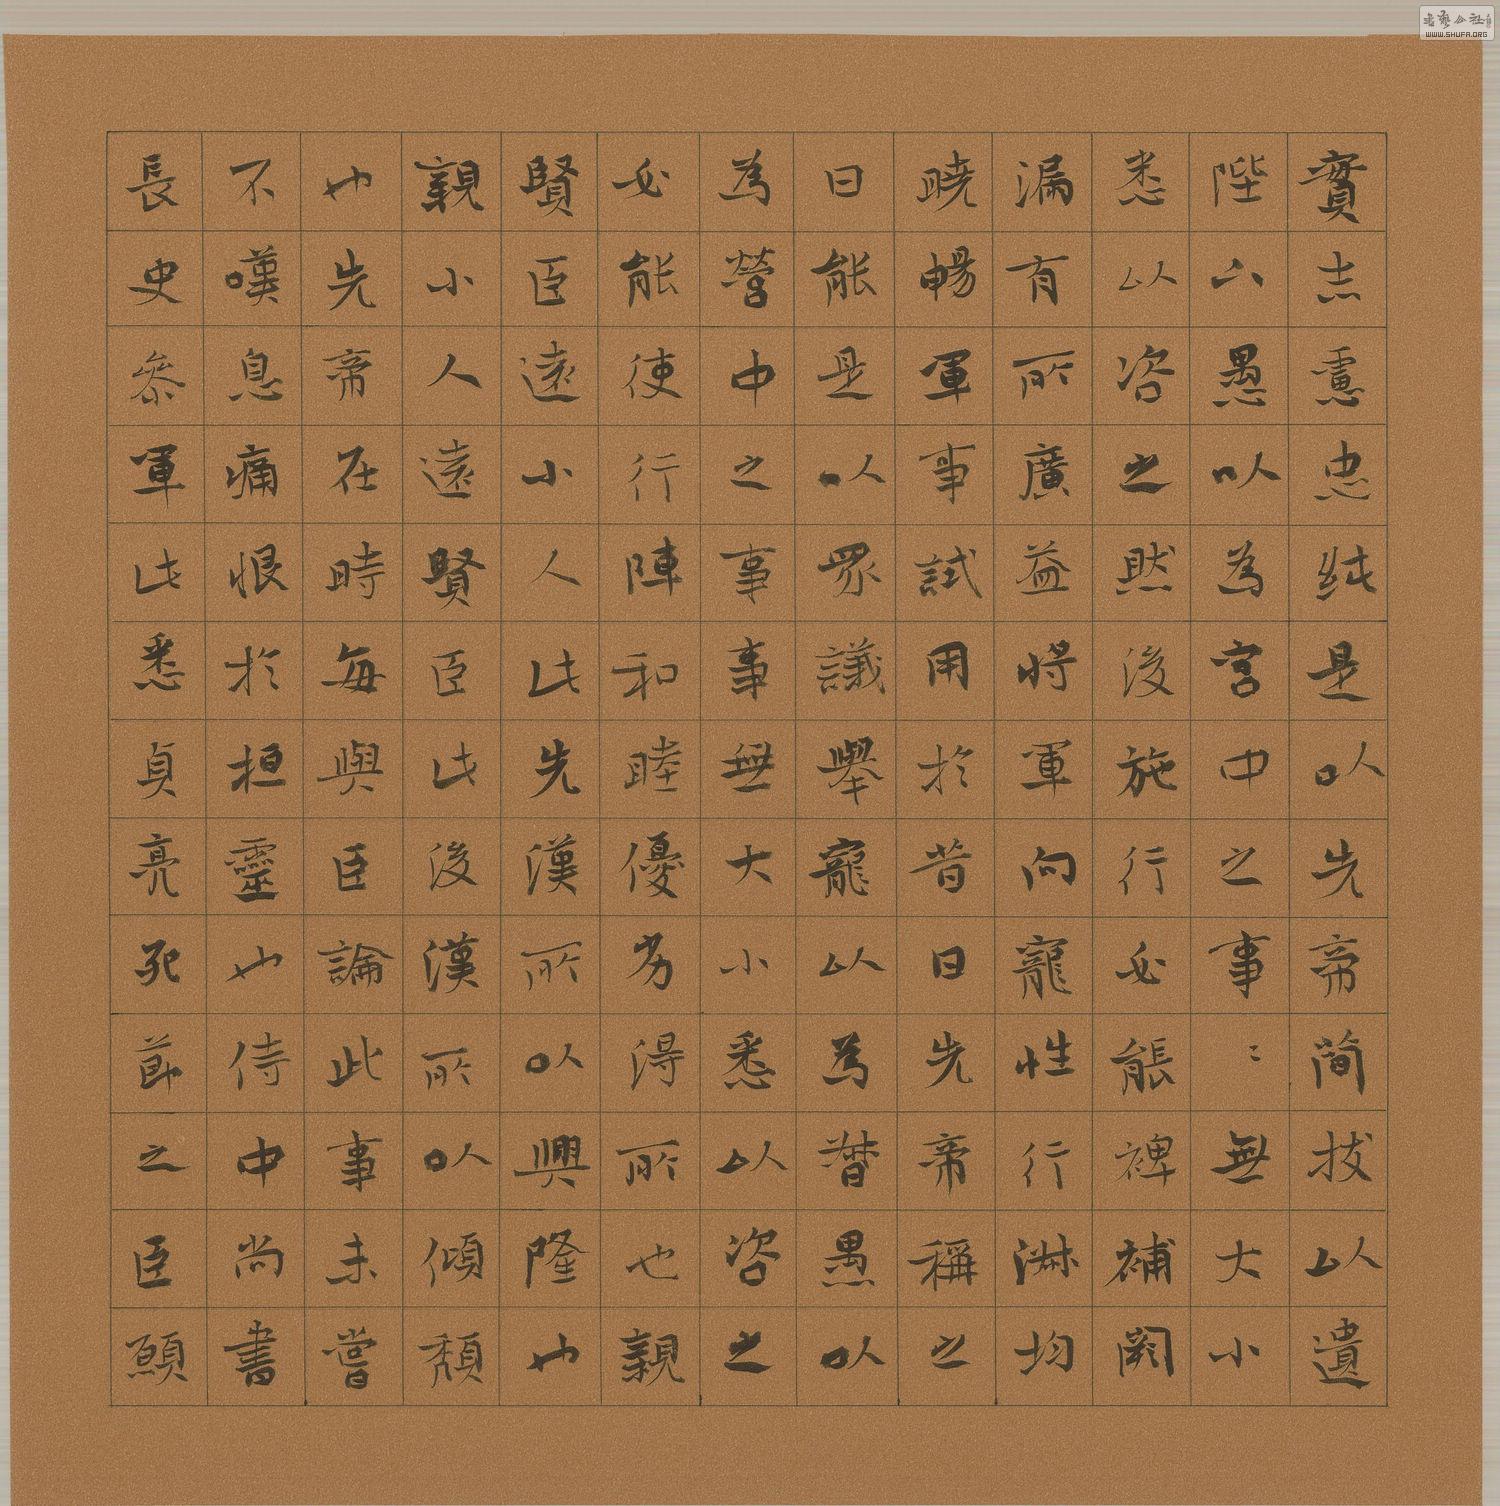 實志慮忠純是以先帝簡拔以遺
陛下愚以為宮中之事〻無大小
悉以咨之然後施行必能裨補闕
漏有所廣益將軍向寵性行淑均
曉暢軍事試用於昔日先帝稱之
曰能是以眾議舉寵以為督愚以
為營中之事事無大小悉以咨之
必能使行陣和睦優劣得所也親
賢臣遠小人此先漢所以興隆也
親小人遠賢臣此後漢所以傾頹
也先帝在時每與臣論此事未嘗
不嘆息痛恨於桓靈也侍中尚書
長史參軍此悉貞亮死節之臣願
書藝公社
WWW.SHUFA.ORG